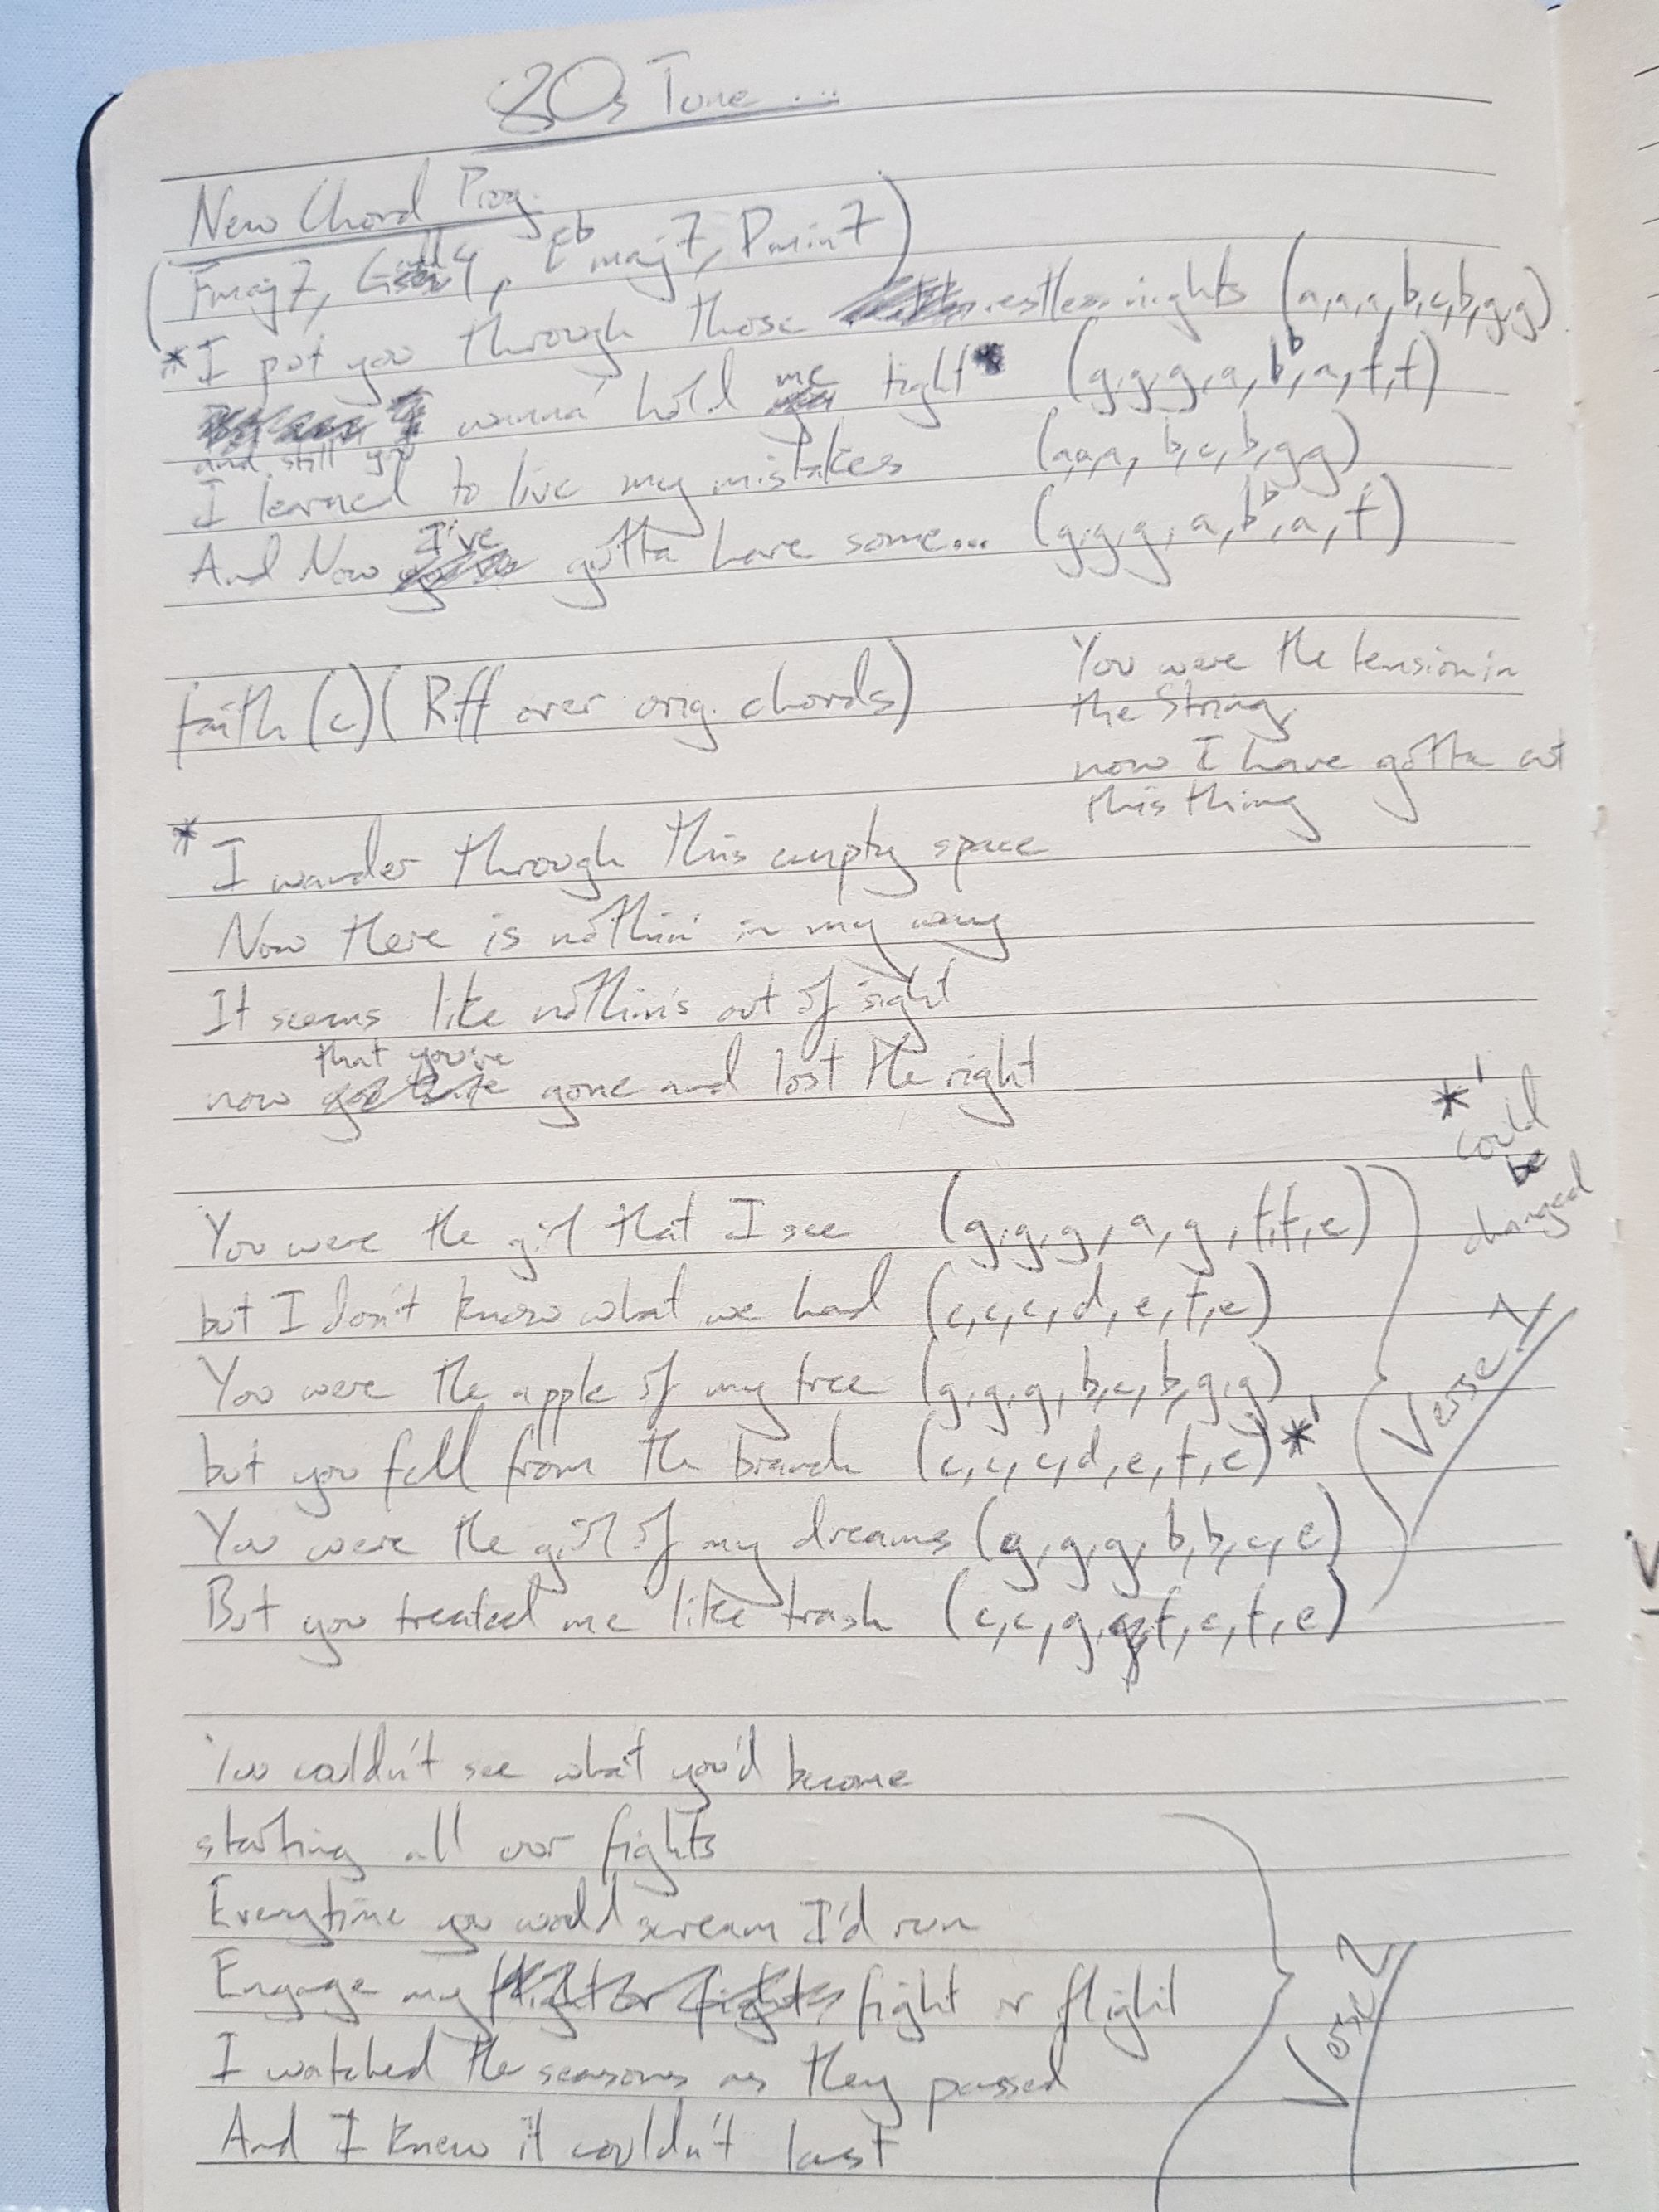 80s Tune...
New Chord Prog.
(Fmaj7, G 4, Ebmaj7, Dmin7)
*I put you through those restless nights (a,a,a,b,c,b,g,g)
and still you wanna' hold me tight* (g,g,g,a,b♭,a,f,f)
I learned to live my mistakes (a,a,a,b,c,b,g,g)
And Now I've gotta have some... (g,g,g,a,b♭,a,f)
faith (c)(Riff over orig. chords)
You were the tension in
the String,
now I have gotta cut
this thing
*I wander through this empty space
Now there is nothin' in my way
It seems like nothin's out of sight
now that you've gone and lost the right
*' could
be
changed
You were the girl that I see (g,g,g,a,g,f,f,e)
but I don't know what we had (c,c,c,d,e,f,e)
You were the apple of my tree (g,g,g,b,c,b,g,g)
but you fell from the branch (c,c,c,d,e,f,e)*'
You were the girl of my dreams (g,g,g,b,b,c,e)
But you treated me like trash (c,c,g,g,f,e,f,e)
Verse 1
You couldn't see what you'd become
starting all our fights
Everytime you would scream I'd run
Engage my fight or flight
I watched the seasons as they passed
And I knew it couldn't last
Verse 2